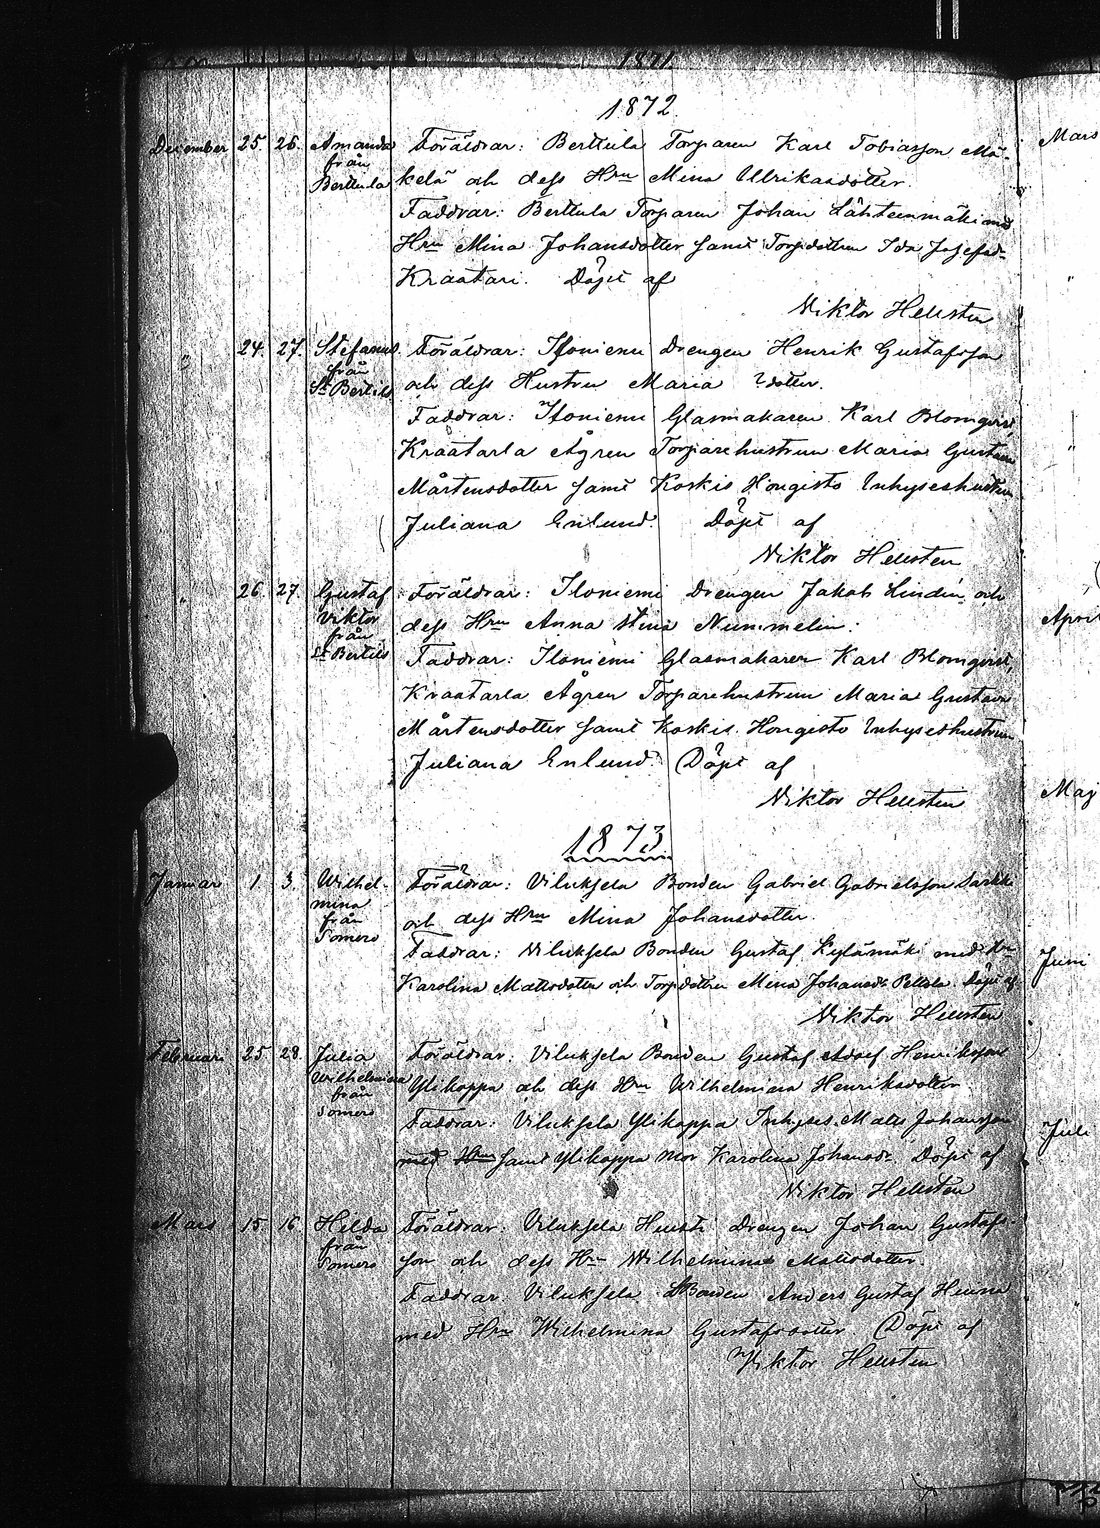 1871
1872
December 25. 26. Amanda Föräldrar: Berttula Torparen Karl Tobiasson Mä-
från
Berttula kelä och dess Hru Mina Ulrikasdotter.
Faddrar: Berttula Torparen Johan Lähteenmäki med
Hru Mina Johansdotter samt Torpdottren Ida Josefsd-
Kraatari. Döpt af
Viktor Hellsten
" 24. 27. Stefanus Föräldrar: Iloniemi Drengen Henrik Gustafsson
från
St Bertils och dess Hustru Maria ? dotter.
Faddrar: Iloniemi Glasmakaren Karl Blomqvist,
Kraatarla Ågren Torparehustrun Maria Gustava
Mårtensdotter samt Koskis Hongisto Inhyseshustrun
Juliana Enlund. Döpt af
Viktor Hellsten
" 26. 27. Gustaf Föräldrar: Iloniemi Drengen Jakob Lindén och
Viktor
från dess Hru Anna Stina Nummelin.
St Bertils Faddrar: Iloniemi Glasmakaren Karl Blomqvist,
Kraatarla Ågren Torparehustrun Maria Gustava
Mårtensdotter samt Koskis Hongisto Inhyseshustrun
Juliana Enlund. Döpt af
Viktor Hellsten
1873
Januar 1. 3. Wilhel- Föräldrar: Viluksela Bonden Gabriel Gabrielsson
mina
från och dess Hru Mina Johansdotter.
Somero Faddrar: Viluksela Bonden Gustaf Kylämäki med Hru
Karolina Matsdotter och Torpdottren Mina Johansdr Peltola. Döpt af
Viktor Hellsten
Februari 25. 28. Julia Föräldrar: Viluksela Bonden Gustaf Adolf Henriksson
Wilhelmina Ylikappa och dess Hru Wilhelmina Henriksdotter.
från
Somero Faddrar: Viluksela Ylikappa Inhyses Mats Johansson
med Hru samt Ylikappa Mor Karolina Johansdr. Döpt af
Viktor Hellsten
Mars 15. 16. Hilda Föräldrar: Viluksela Drengen Johan Gustafs-
från
Somero son och dess Hru Wilhelmina Matsdotter.
Faddrar: Viluksela Bonden Anders Gustaf
med Hru Wilhelmina Gustafsdotter. Döpt af
Viktor Hellsten
Mars
"
"
April
Maj
Juni
Juli
"